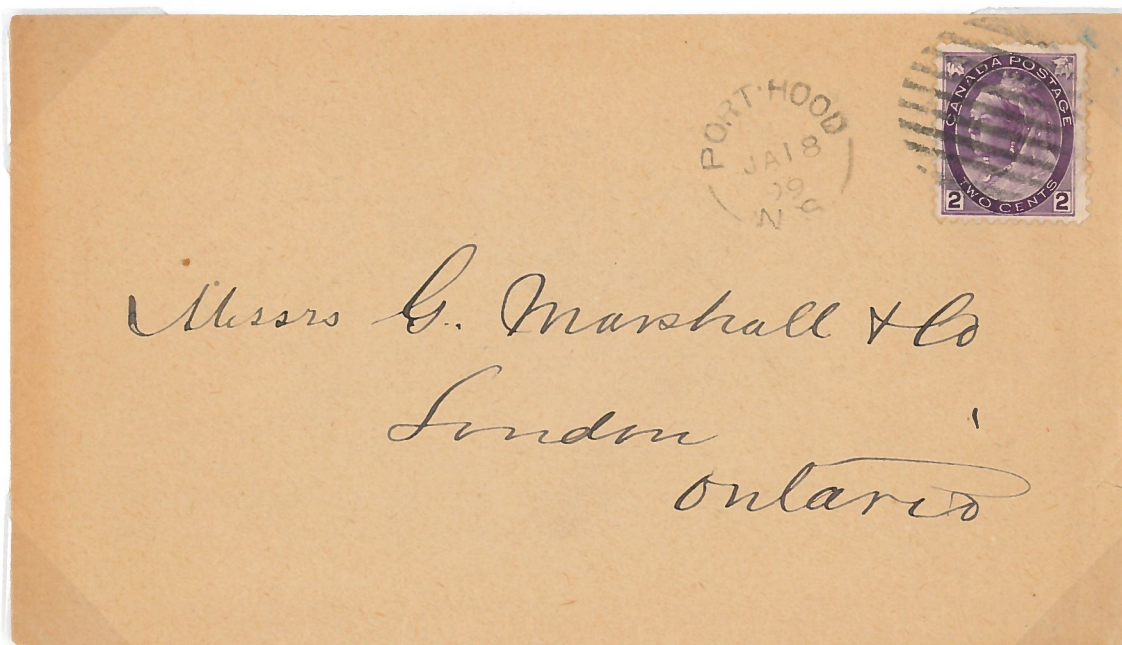 PORT·HOOD
JA 18
N S
CANADA POSTAGE
TWO CENTS
2 2
Messrs G. Marshall & Co
London
Ontario